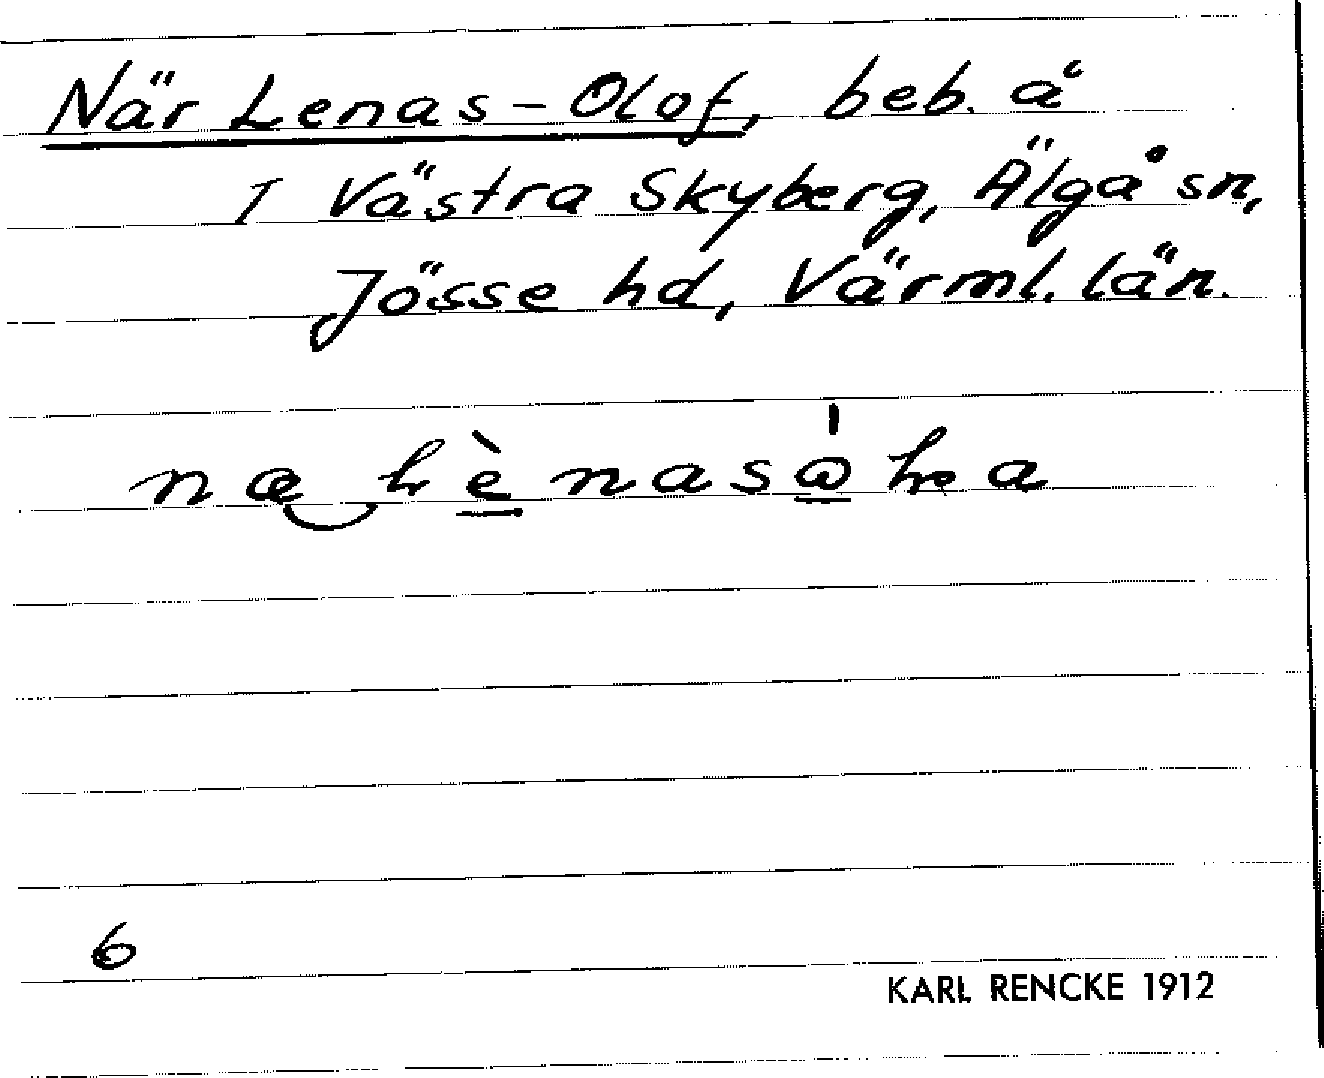 När Lenas-Olof, beb. å
I Västra Skyberg, Älgå sn,
Jösse hd, Värml. län.
6
KARL RENCKE 1912